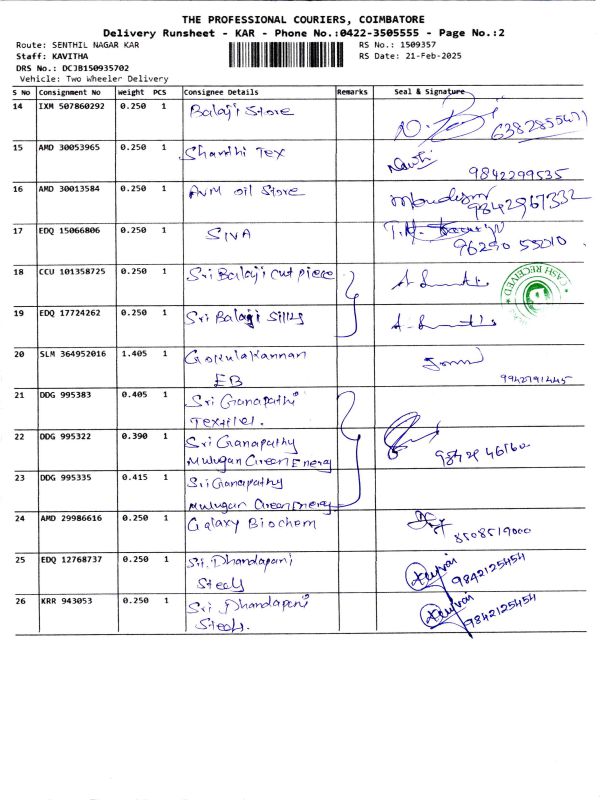 THE PROFESSIONAL COURIERS, COIMBATORE
Delivery Runsheet - KAR - Phone No.:0422-3505555 - Page No.:2
Route: SENTHIL NAGAR KAR
RS No.: 1509357
Staff: KAVITHA
RS Date: 21-Feb-2025
DRS No.: DCJB150935702
Vehicle: Two Wheeler Delivery
S No Consignment No Weight PCS Consignee Details Remarks Seal & Signature
14 IXM 507860292 0.250 1 Balaji Store
6382855471
15 AMD 30053965 0.250 1 Shanthi Tex
9842299535
16 AMD 30013584 0.250 1 AVM oil Store
9842967332
17 EDQ 15066806 0.250 1 SIVA
96290 55010
18 CCU 101358725 0.250 1 Sri Balaji cut piece
CASH RECEIVED
19 EDQ 17724262 0.250 1 Sri Balaji Silks
20 SLM 364952016 1.405 1 Gokulakannan
EB
9942791445
21 DDG 995383 0.405 1 Sri Ganapathi
Textiles.
22 DDG 995322 0.390 1 Sri Ganapathy
Mulugan Green Energy
23 DDG 995335 0.415 1 Sri Ganapathy
Mulugan Green Energy
24 AMD 29986616 0.250 1 Galaxy Biochem
8508519000
25 EDQ 12768737 0.250 1 Sri. Dhandapani
Steels
9842125454
26 KRR 943053 0.250 1 Sri Dhandapani
Steels.
9842125454